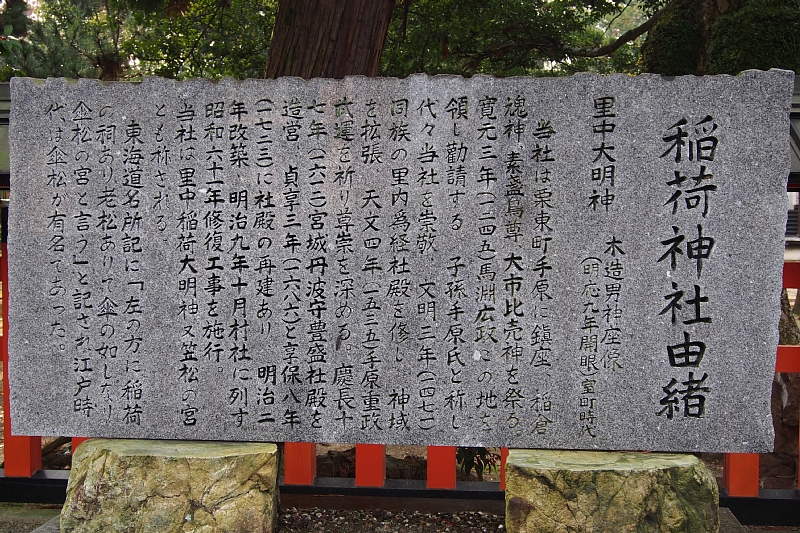 稲荷神社由緒
里中大明神 木造男神座像
(明応九年開眼)室町時代
当社は栗東町手原に鎮座、稲倉
魂神、素盞嗚尊、大市比売神を祭る。
寛元三年(一二四五)馬淵広政この地を
領し勧請する 子孫手原氏と称し
代々当社を崇敬 文明三年(一四七一)
同族の里内為経社殿を修し 神域
を拡張 天文四年(一五三五)手原重政
武運を祈り尊崇を深める。慶長十
七年(一六一二)宮城丹波守豊盛社殿を
造営、貞享三年(一六八六)と享保八年
(一七二三)に社殿の再建あり 明治二
年改築 明治九年十月村社に列す
昭和六十一年修復工事を施行。
当社は里中稲荷大明神又笠松の宮
とも称される。
東海道名所記に「左の方に稲荷
の祠あり老松ありて傘の如しなり
傘松の宮と言う」と記され江戸時
代は傘松が有名であった。